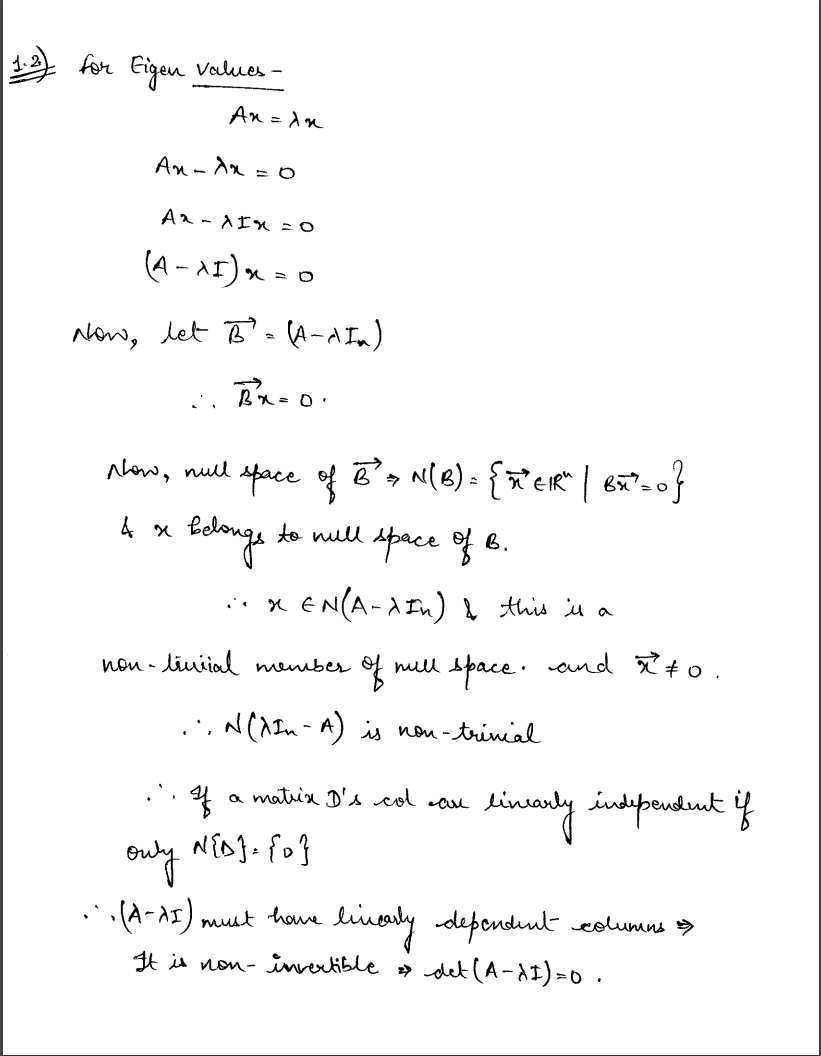 1.2) for Eigen values -
Ax = λx
Ax - λx = 0
Ax - λIx = 0
(A - λI)x = 0
Now, let B⃗ = (A - λIₙ)
∴ B⃗x = 0.
Now, null space of B⃗ ⇒ N(B) = {x⃗ ∈ ℝⁿ | Bx⃗ = 0}
& x belongs to null space of B.
∴ x ∈ N(A - λIₙ) & this is a
non-trivial member of null space. and x⃗ ≠ 0.
∴ N(λIₙ - A) is non-trivial
∴ If a matrix D's col are linearly independent if
only N{D} = {0}
∴ (A - λI) must have linearly dependent columns ⇒
It is non-invertible ⇒ det(A - λI) = 0.